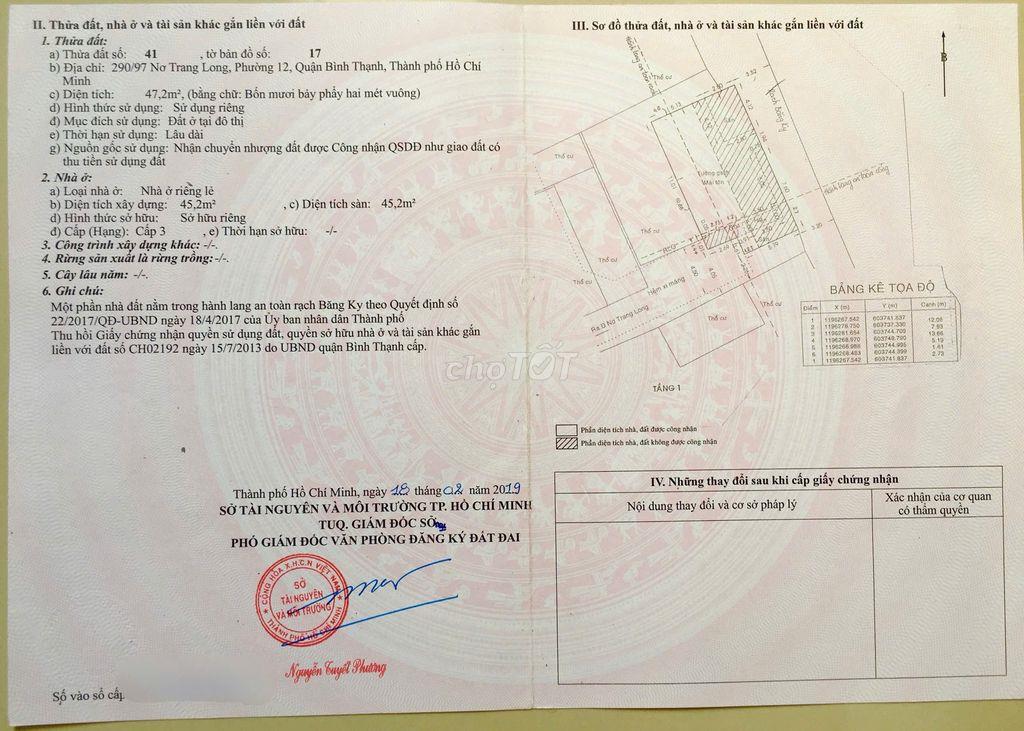 II. Thửa đất, nhà ở và tài sản khác gắn liền với đất
1. Thửa đất:
a) Thửa đất số: 41 , tờ bản đồ số: 17
b) Địa chỉ: 290/97 Nơ Trang Long, Phường 12, Quận Bình Thạnh, Thành phố Hồ Chí
Minh
c) Diện tích: 47,2m², (bằng chữ: Bốn mươi bảy phẩy hai mét vuông)
d) Hình thức sử dụng: Sử dụng riêng
đ) Mục đích sử dụng: Đất ở tại đô thị
e) Thời hạn sử dụng: Lâu dài
g) Nguồn gốc sử dụng: Nhận chuyển nhượng đất được Công nhận QSDĐ như giao đất có
thu tiền sử dụng đất
2. Nhà ở:
a) Loại nhà ở: Nhà ở riêng lẻ
b) Diện tích xây dựng: 45,2m² , c) Diện tích sàn: 45,2m²
d) Hình thức sở hữu: Sở hữu riêng
đ) Cấp (Hạng): Cấp 3 , e) Thời hạn sở hữu: -/-
3. Công trình xây dựng khác: -/-.
4. Rừng sản xuất là rừng trồng: -/-.
5. Cây lâu năm: -/-.
6. Ghi chú:
Một phần nhà đất nằm trong hành lang an toàn rạch Băng Ky theo Quyết định số
22/2017/QĐ-UBND ngày 18/4/2017 của Ủy ban nhân dân Thành phố
Thu hồi Giấy chứng nhận quyền sử dụng đất, quyền sở hữu nhà ở và tài sản khác gắn
liền với đất số CH02192 ngày 15/7/2013 do UBND quận Bình Thạnh cấp.
Thành phố Hồ Chí Minh, ngày 18 tháng 02 năm 2019
SỞ TÀI NGUYÊN VÀ MÔI TRƯỜNG TP. HỒ CHÍ MINH
TUQ. GIÁM ĐỐC SỞ
PHÓ GIÁM ĐỐC VĂN PHÒNG ĐĂNG KÝ ĐẤT ĐAI
CỘNG HÒA X.H.C.N VIỆT NAM
SỞ
TÀI NGUYÊN
VÀ MÔI TRƯỜNG
THÀNH PHỐ HỒ CHÍ MINH
Nguyễn Tuyết Phương
Số vào sổ cấp
III. Sơ đồ thửa đất, nhà ở và tài sản khác gắn liền với đất
B
Thổ cư
Rạch Băng Ky
Thổ cư
Tường gạch
Mái tôn
Thổ cư
Thổ cư
Hẻm xi măng
Ra Đ Nơ Trang Long
Thổ cư
TẦNG 1
BẢNG KÊ TỌA ĐỘ
Điểm X (m) Y (m) Cạnh (m)
1 1196267.542 603741.837 12.06
2 1196278.750 603737.330 7.93
3 1196281.654 603744.709 13.66
4 1196268.970 603749.790 5.19
5 1196266.988 603744.995 1.61
6 1196268.483 603744.399 2.73
1 1196267.542 603741.837
Phần diện tích nhà, đất được công nhận
Phần diện tích nhà, đất không được công nhận
chợTỐT
IV. Những thay đổi sau khi cấp giấy chứng nhận
Nội dung thay đổi và cơ sở pháp lý
Xác nhận của cơ quan
có thẩm quyền